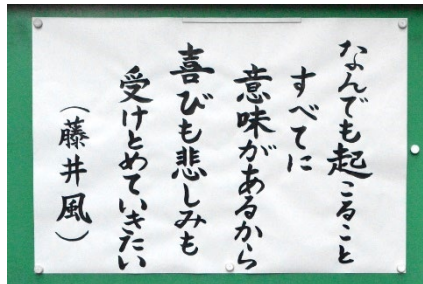 なんでも起こること
すべてに
意味があるから
喜びも悲しみも
受けとめていきたい
（藤井風）